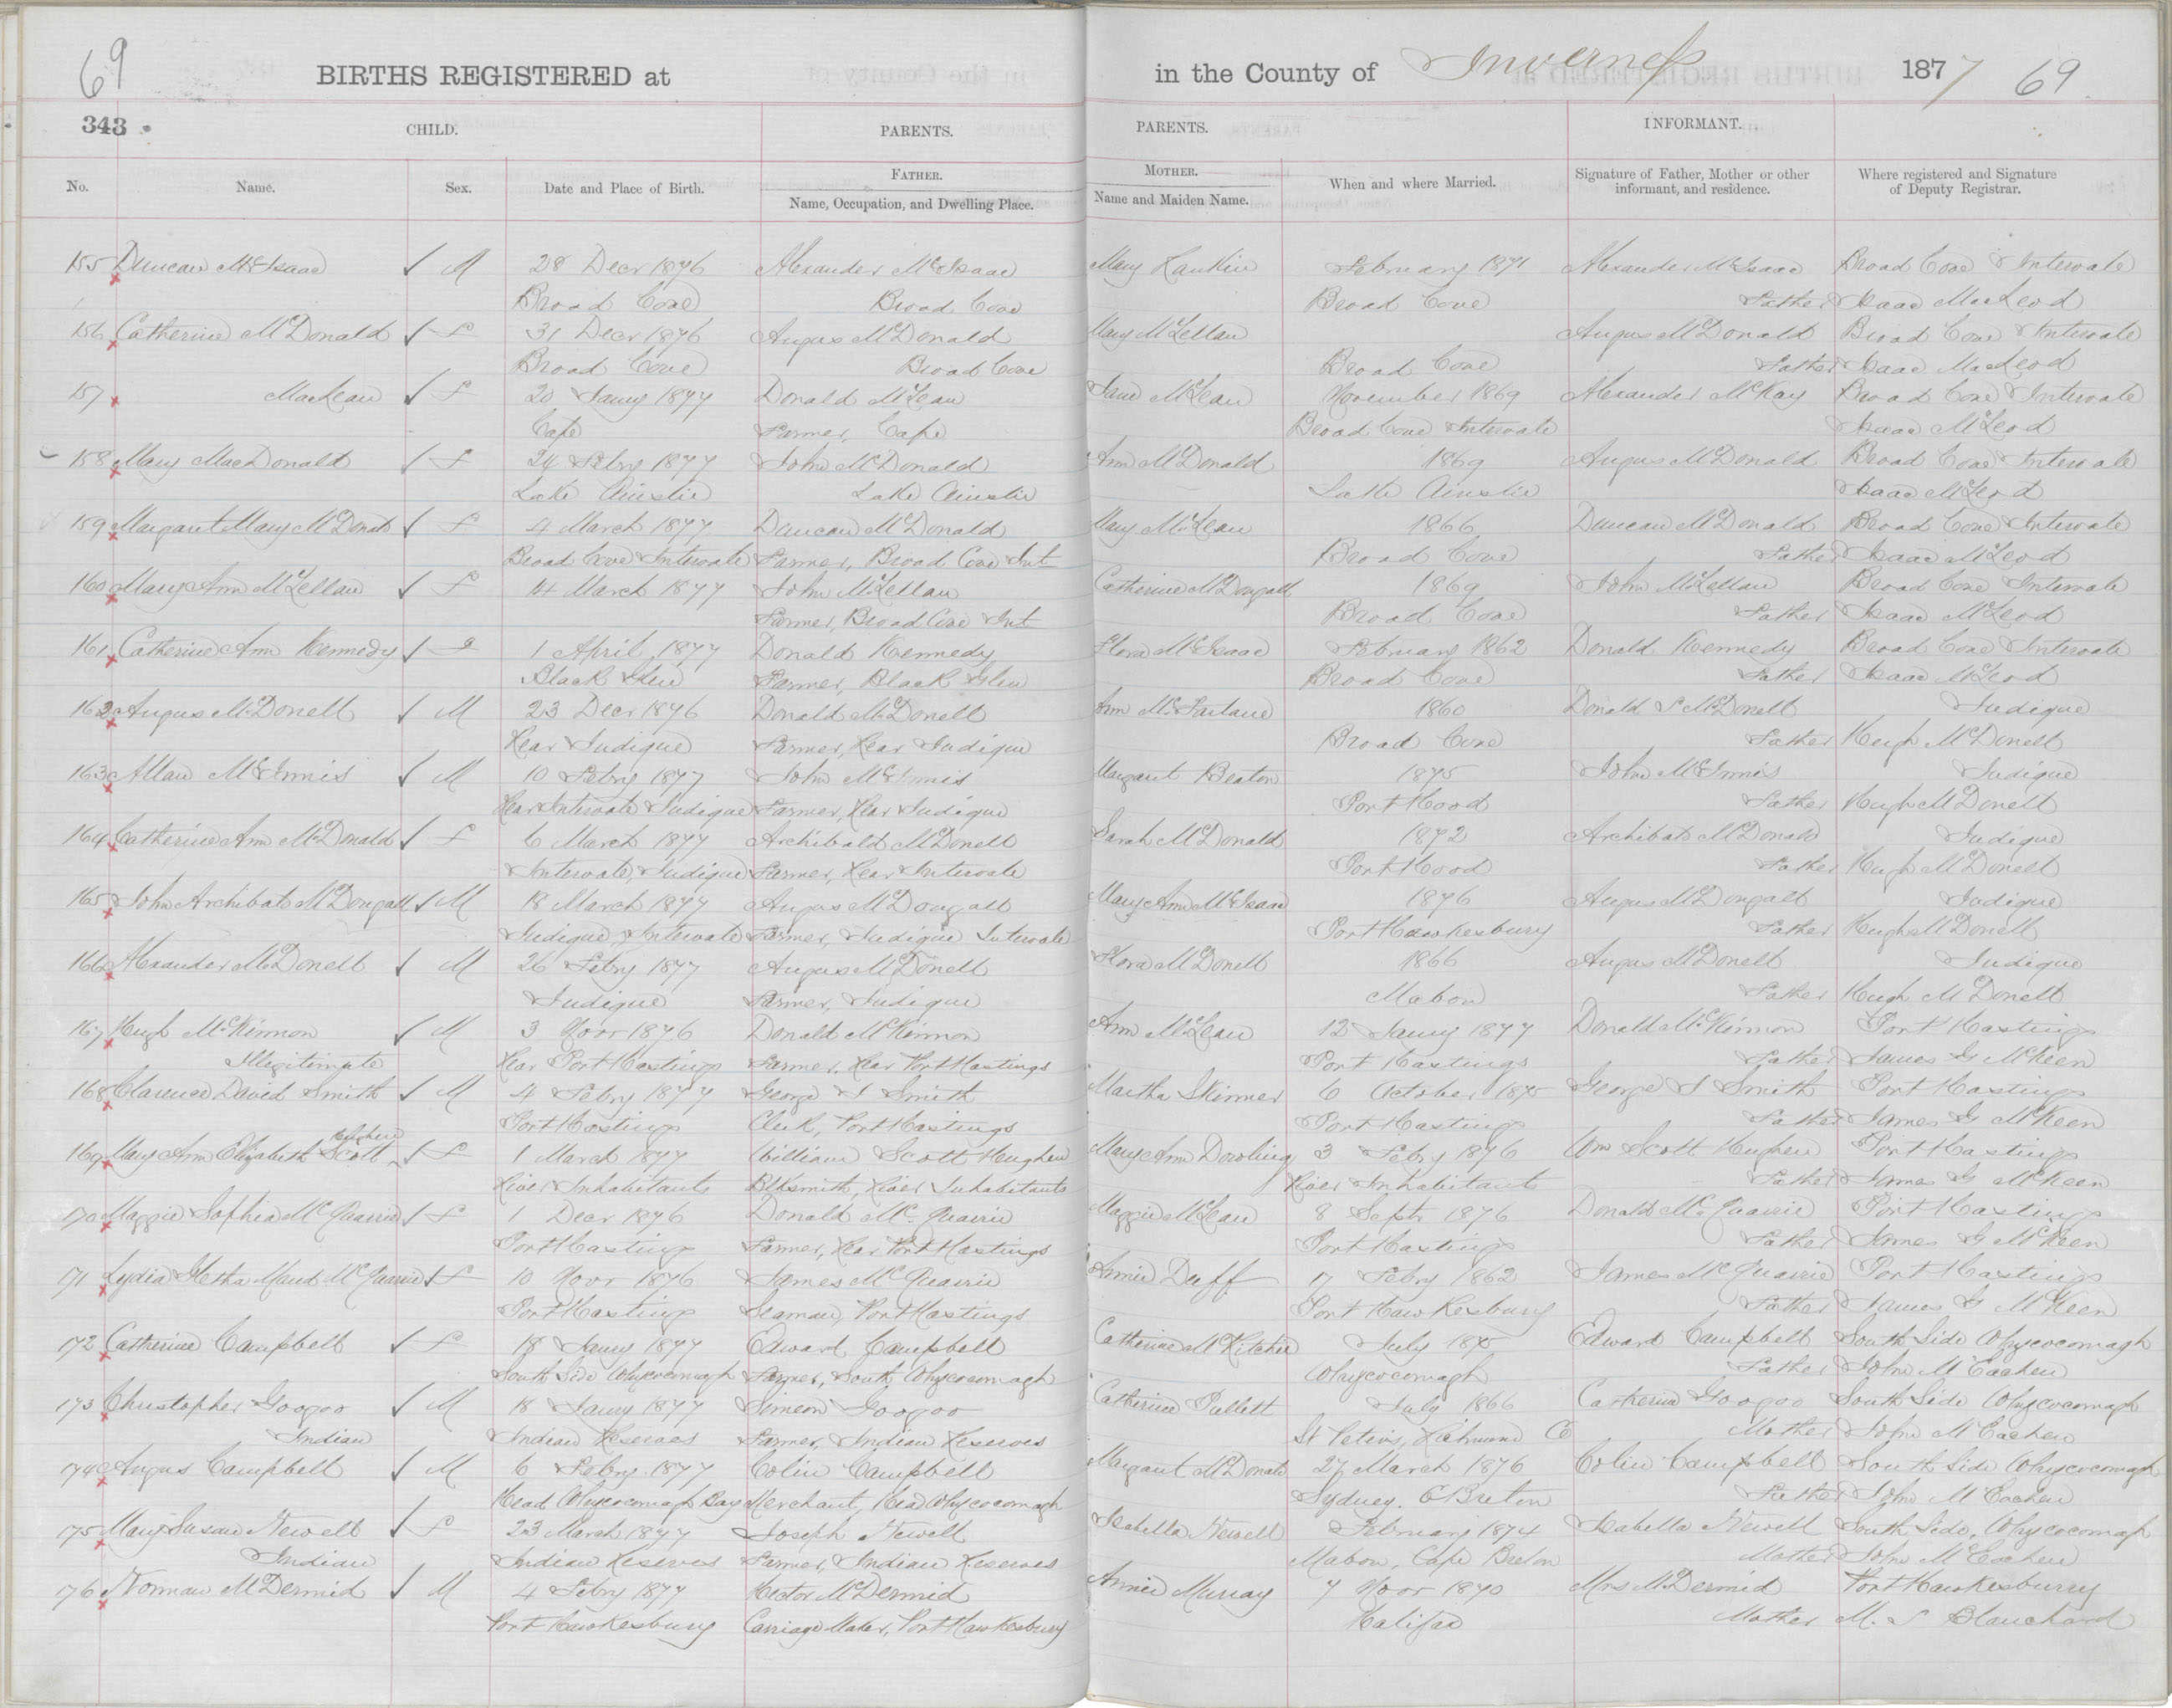 69
BIRTHS REGISTERED at in the County of Inverness 1877 69
343 CHILD. PARENTS. PARENTS. INFORMANT.
No. Name. Sex. Date and Place of Birth. FATHER. Name, Occupation, and Dwelling Place. MOTHER. Name and Maiden Name. When and where Married. Signature of Father, Mother or other informant, and residence. Where registered and Signature of Deputy Registrar.
155 Duncan McIsaac ✓ M 28 Decr 1876 Alexander McIsaac Mary Rankin February 1871 Alexander McIsaac Broad Cove Intervale
Broad Cove Broad Cove Broad Cove Father Isaac MacLeod
156 Catherine McDonald ✓ F 31 Decr 1876 Angus McDonald Mary McLellan Angus McDonald Broad Cove Intervale
Broad Cove Broad Cove Broad Cove Father Isaac MacLeod
157 MacLean ✓ F 20 Jany 1877 Donald McLean Jane McLean November 1869 Alexander McKay Broad Cove Intervale
Cape Farmer, Cape Broad Cove Intervale Isaac McLeod
158 Mary MacDonald ✓ F 24 Febry 1877 John McDonald Ann McDonald 1869 Angus McDonald Broad Cove Intervale
Lake Ainslie Lake Ainslie Lake Ainslie Isaac McLeod
159 Margaret Mary McDonald ✓ F 4 March 1877 Duncan McDonald Mary McLean 1866 Duncan McDonald Broad Cove Intervale
Broad Cove Intervale Farmer, Broad Cove Int Broad Cove Father Isaac McLeod
160 Mary Ann McLellan ✓ F 14 March 1877 John McLellan Catherine McDougall 1869 John McLellan Broad Cove Intervale
Farmer, Broad Cove Int Broad Cove Father Isaac McLeod
161 Catherine Ann Kennedy ✓ F 1 April 1877 Donald Kennedy Flora McIsaac February 1862 Donald Kennedy Broad Cove Intervale
Black Glen Farmer, Black Glen Broad Cove Father Isaac McLeod
162 Angus McDonell ✓ M 23 Decr 1876 Donald McDonell Ann McFarlane 1860 Donald S McDonell Judique
Rear Judique Farmer, Rear Judique Broad Cove Father Hugh McDonell
163 Allan McInnis ✓ M 10 Febry 1877 John McInnis Margaret Beaton 1875 John McInnis Judique
Rear Intervale Judique Farmer, Rear Judique Port Hood Father Hugh McDonell
164 Catherine Ann McDonald ✓ F 6 March 1877 Archibald McDonell Sarah McDonald 1872 Archibald McDonald Judique
Intervale, Judique Farmer, Rear Intervale Port Hood Father Hugh McDonell
165 John Archibald McDougall ✓ M 18 March 1877 Angus McDougall Mary Ann McIsaac 1876 Angus McDougall Judique
Judique, Intervale Farmer, Judique Intervale Port Hawkesbury Father Hugh McDonell
166 Alexander McDonell ✓ M 26 Febry 1877 Angus McDonell Flora McDonell 1866 Angus McDonell Judique
Judique Farmer, Judique Mabou Father Hugh McDonell
167 Hugh McKinnon ✓ M 3 Novr 1876 Donald McKinnon Ann McLean 12 Jany 1877 Donald McKinnon Port Hastings
Illegitimate Rear Port Hastings Farmer, Rear Port Hastings Port Hastings Father James G McKeen
168 Clarence David Smith ✓ M 4 Febry 1877 George S Smith Martha Skinner 6 October 1875 George S Smith Port Hastings
Port Hastings Clerk, Port Hastings Port Hastings Father James G McKeen
Hughen
169 Mary Ann Elizabeth Scott ✓ F 1 March 1877 William Scott Hughen Mary Ann Dowling 3 Febry 1876 Wm Scott Hughen Port Hastings
River Inhabitants Blksmith, River Inhabitants River Inhabitants Father James G McKeen
170 Maggie Sophia McQuarrie ✓ F 1 Decr 1876 Donald McQuarrie Maggie McLean 8 Septr 1876 Donald McQuarrie Port Hastings
Port Hastings Farmer, Rear Port Hastings Port Hastings Father James G McKeen
171 Lydia Maud McQuarrie ✓ F 10 Novr 1876 James McQuarrie Annie Duff 17 Febry 1862 James McQuarrie Port Hastings
Port Hastings Seaman, Port Hastings Port Hawkesbury Father James G McKeen
172 Catherine Campbell ✓ F 18 Jany 1877 Edward Campbell Catherine McRitchie July 1875 Edward Campbell South Side Whycocomagh
South Side Whycocomagh Farmer, South Whycocomagh Whycocomagh Father John McEachen
173 Christopher Googoo ✓ M 18 Jany 1877 Simeon Googoo Catherine Pullett July 1866 Catherine Googoo South Side Whycocomagh
Indian Indian Reserves Farmer, Indian Reserves St Peters, Richmond Co Mother John McEachen
174 Angus Campbell ✓ M 6 Febry. 1877 Colin Campbell Margaret McDonald 27 March 1876 Colin Campbell South Side Whycocomagh
Head Whycocomagh Bay Merchant, Head Whycocomagh Sydney. C Breton Father John McEachen
175 Mary Susan Newell ✓ F 23 March 1877 Joseph Newell Isabella Newell February 1874 Isabella Newell South Side, Whycocomagh
Indian Indian Reserves Farmer, Indian Reserves Mabou, Cape Breton Mother John McEachen
176 Norman McDermid ✓ M 4 Febry 1877 Hector McDermid Annie Murray 7 Novr 1870 Mrs McDermid Port Hawkesbury
Port Hawkesbury Carriage Maker, Port Hawkesbury Halifax Mother M. S Blanchard